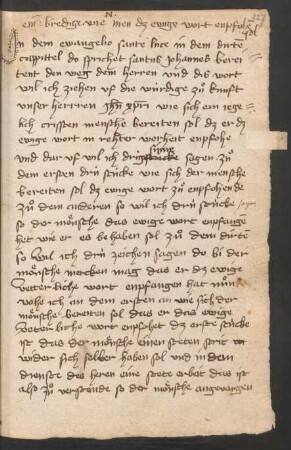 ein bredige wie men dz ewige wort enpfohe
sol
In dem ewangelio sante lucz in dem dirte
cappittel do sprichet santus Johannes berei
tent den weg dem herren und dis wort
wil ich ziehen uf die würdige zů kunft
unser herren jhu xpi wie sich ein iege
lich cristen mensche bereiten sol dz er dz
ewige wort in rehter worheit enpfohe
und dar uf wil ich drige sagen zů
dem ersten drü stücke wie sich der mensche
bereiten sol dz ewige wort zů enpfohende
zů dem anderen so wil ich drü stücke sagen
so der mönsche das ewige wort enpfange
het wie er es behaben sol zů dem dirten
so wil ich drü zeichen sagen do bi der
mönsche mercken mag das er dz ewige
vetterliche wort enpfangen hat nün
vohe ich an dem ersten an wie sich der
mönsche bereiten sol das er das ewige
vetterliche wort enpfohet dz erste stücke
ist das der mönsche einen steten strit
wider sich selber haben sol und in dem
dienste des heren eine stete erbeit das ist
also zů verstonde so der mönsche angevangen